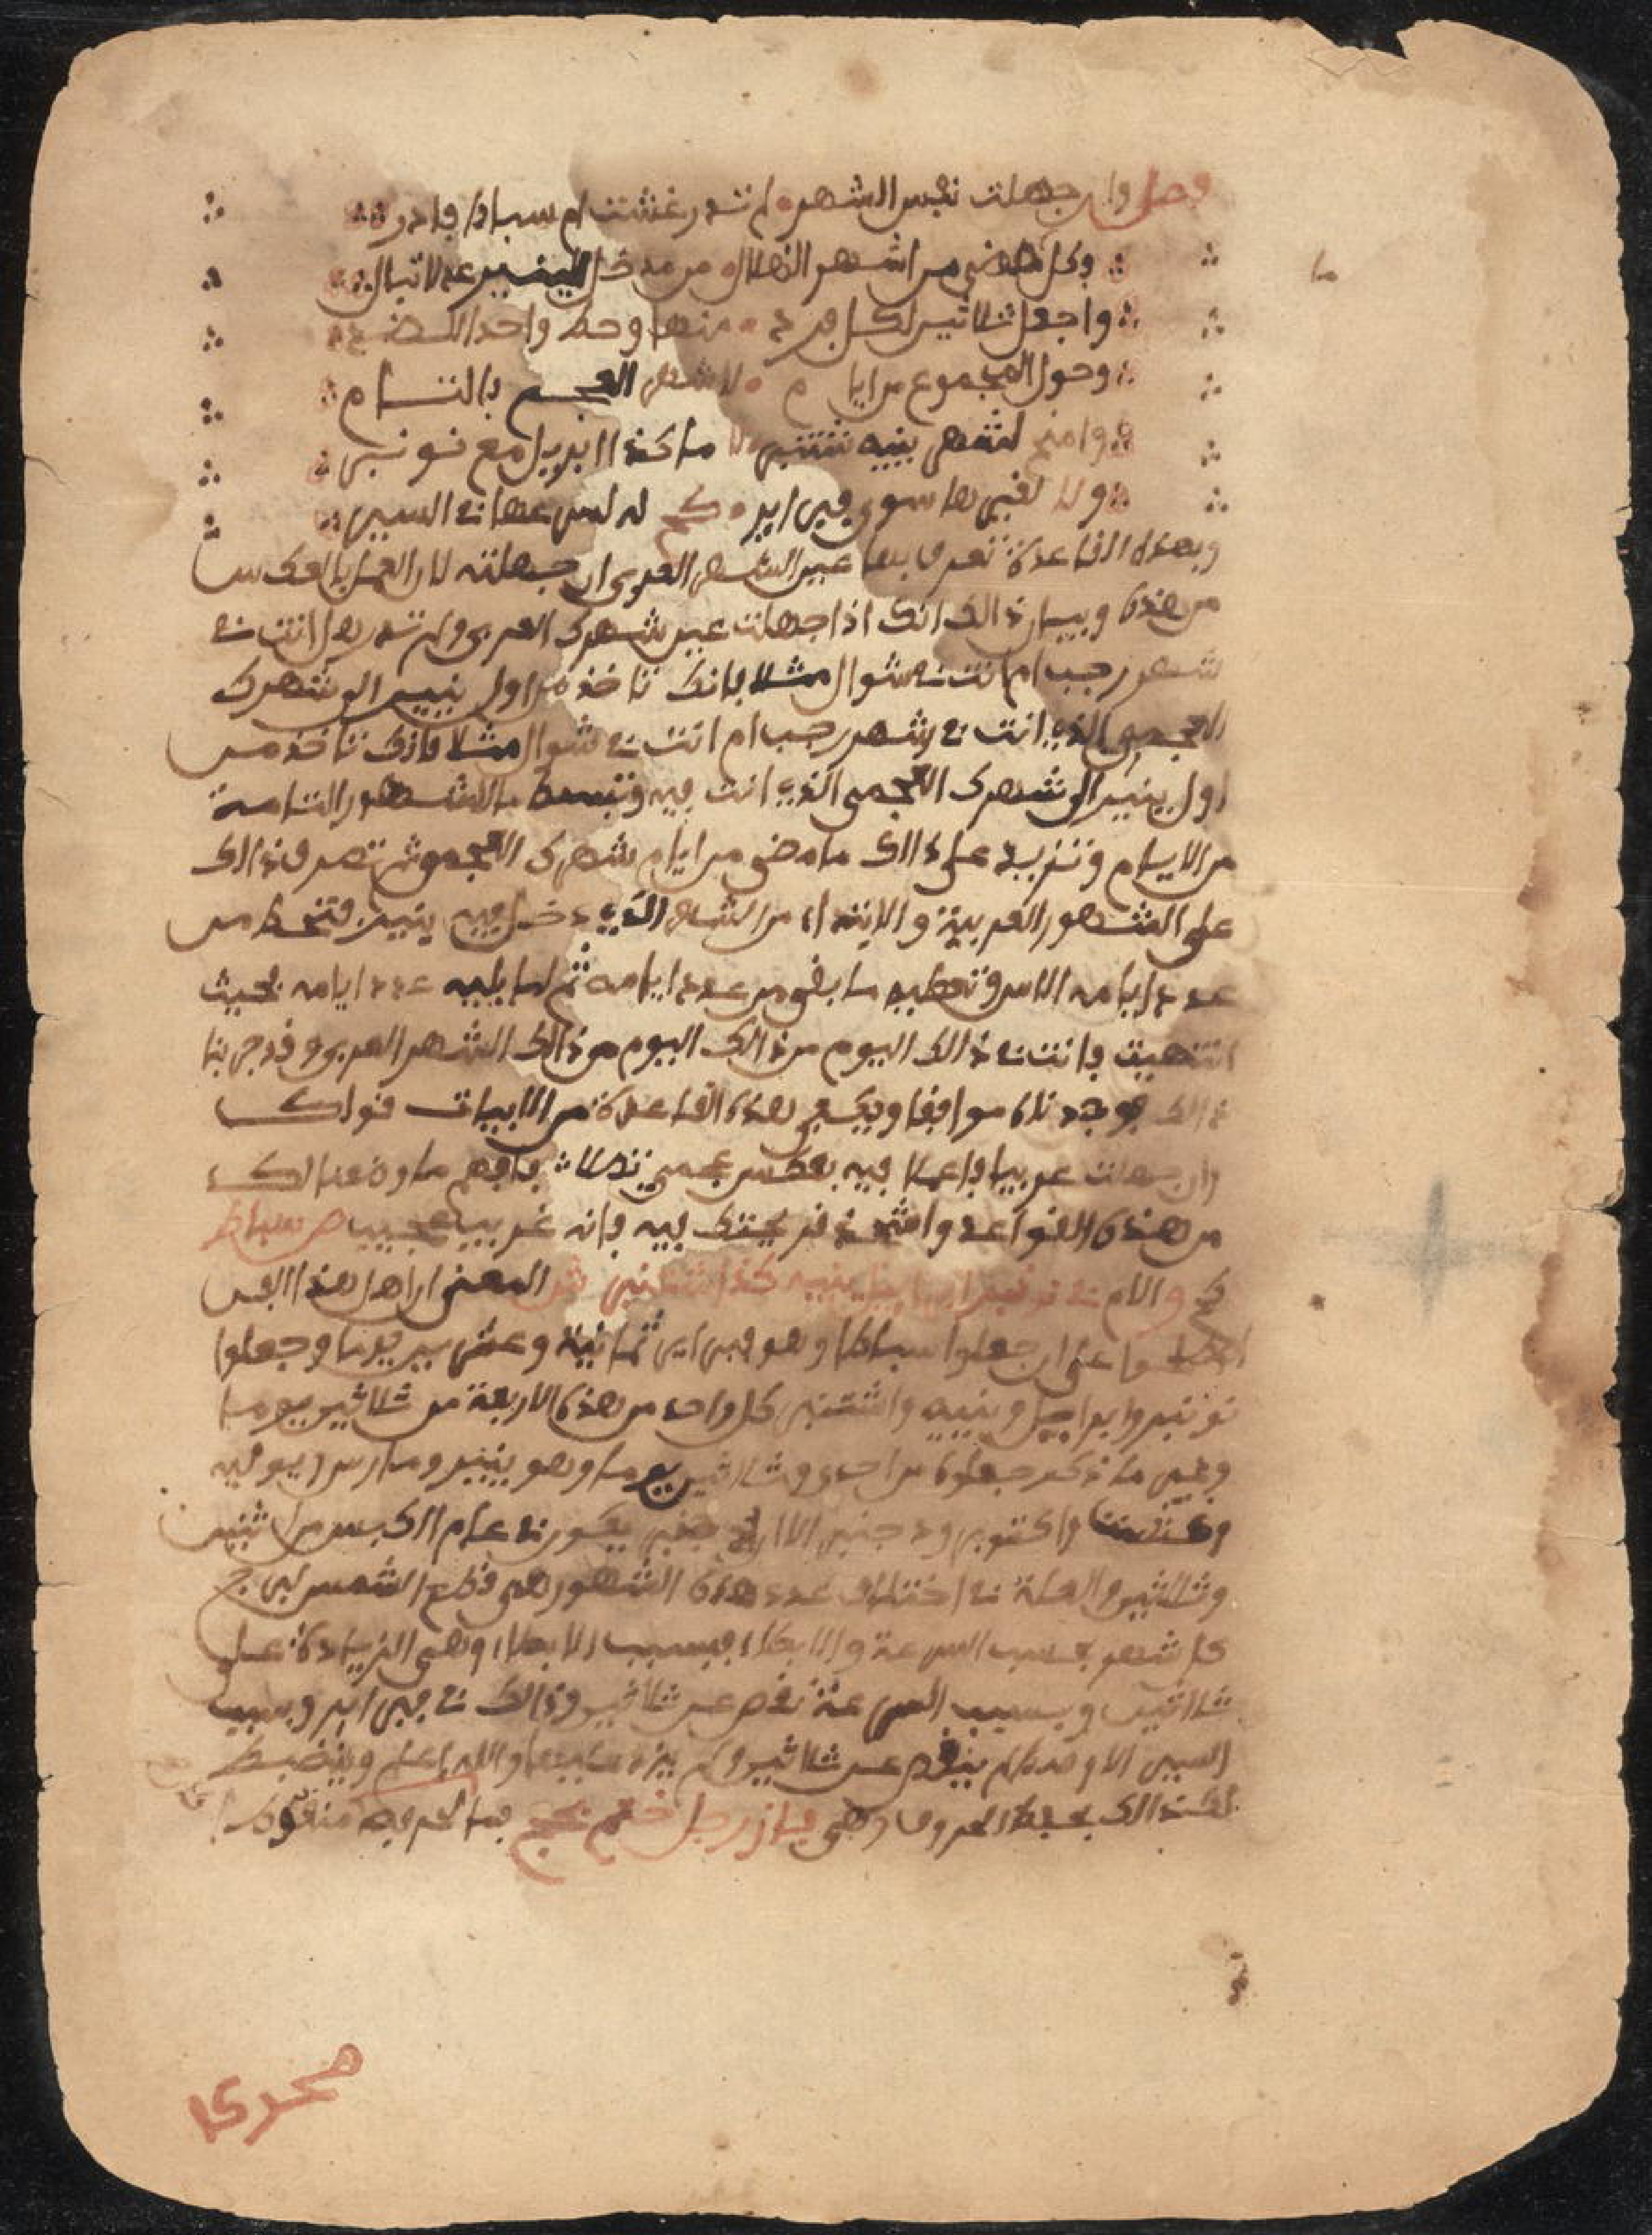 فصل وان جهلت نفس الشهر لم تدر غشت ام سباط فادر
وكل ما مضى من اشهر الهلال من مدخل الينير عد لا تبال
واجعل ثلاثين لكل فرد منها وحط واحدا للضد
وحول المجموع من ايام لاشهر العجم بالتمام
وامنح لشهر ينيه شتنبر لا ما كذا ابريل مع نونبر
ولا لغيرها سوى فبراير كح له ليس على السير
وبهذه القاعدة تعرف بها عين الشهر العربي ان جهلته لان العمل بالعكس
من هذه وبيان ذالك انك اذا جهلت عين شهرك العربي ولم تدر هل انت في
شهر رجب ام انت في شوال مثلا فانك تاخذ من اول ينيير الى شهرك
العجمي الذي انت في شهر رجب ام انت في شوال مثلا فانك تاخذ من
اول ينيير الى شهرك العجمي الذي انت فيه وتبسط الاشهر التامة
من الايام وتزيد على ذالك ما مضى من ايام شهرك العجمي ثم تصرف ذالك
على الشهور العربية والابتداء من الشهر الذي دخل فيه ينيير فتحط من
عدد ايامه الاس وتعطيه ما بقي من عدد ايامه ثم لما يليه عدد ايامه بحيث
انتهيت فانت في ذالك اليوم من ذالك اليوم من ذالك الشهر العربي وقد جربنا
ذالك فوجدناه موافقا ويكفي هذه القاعدة من الابيات قولك
وان جهلت عربيا فاعملا فيه بعكس عجمي فافهم ما وضعنا لك
من هذه القواعد واشحذ فريحتك فيه فانه غريب عجيب ص سباط
كح والام في نونبر ابريل ينيه كذا شتنبر ش المعنى ان اهل هذا الفن
اصطلحوا على ان جعلوا سباطا وهو فبراير ثمانية وعشرين يوما وجعلوا
نونبر وابرايل وينيه واشتنبر كل واحد من هذه الاربعة من ثلاثين يوما
وغير ما ذكر جعلوه من احدى وثلاثين يوما وهو ينير ومارس ويوليه
وغشت واكتوبر ودجنبر الا ان دجنبر يكون في عام الكبس من اثنين
وثلاثين والعلة في اختلاف عدد هذه الشهور هي قطع الشمس لبرج
كل شهر بحسب السرعة والابطاء فبسبب الابطاء وهي الزيادة على
ثلاثين وبسبب السرعة نقص عن ثلاثين وذالك في فبراير وبسبب
السير الاوسط لم ينقص عن ثلاثين ولم يزد عليها والله اعلم وينضبط
لك ذالك بحفظ الحروف وهي فاز رجل ختم بحج فما لحرفه منقوط
صحرى